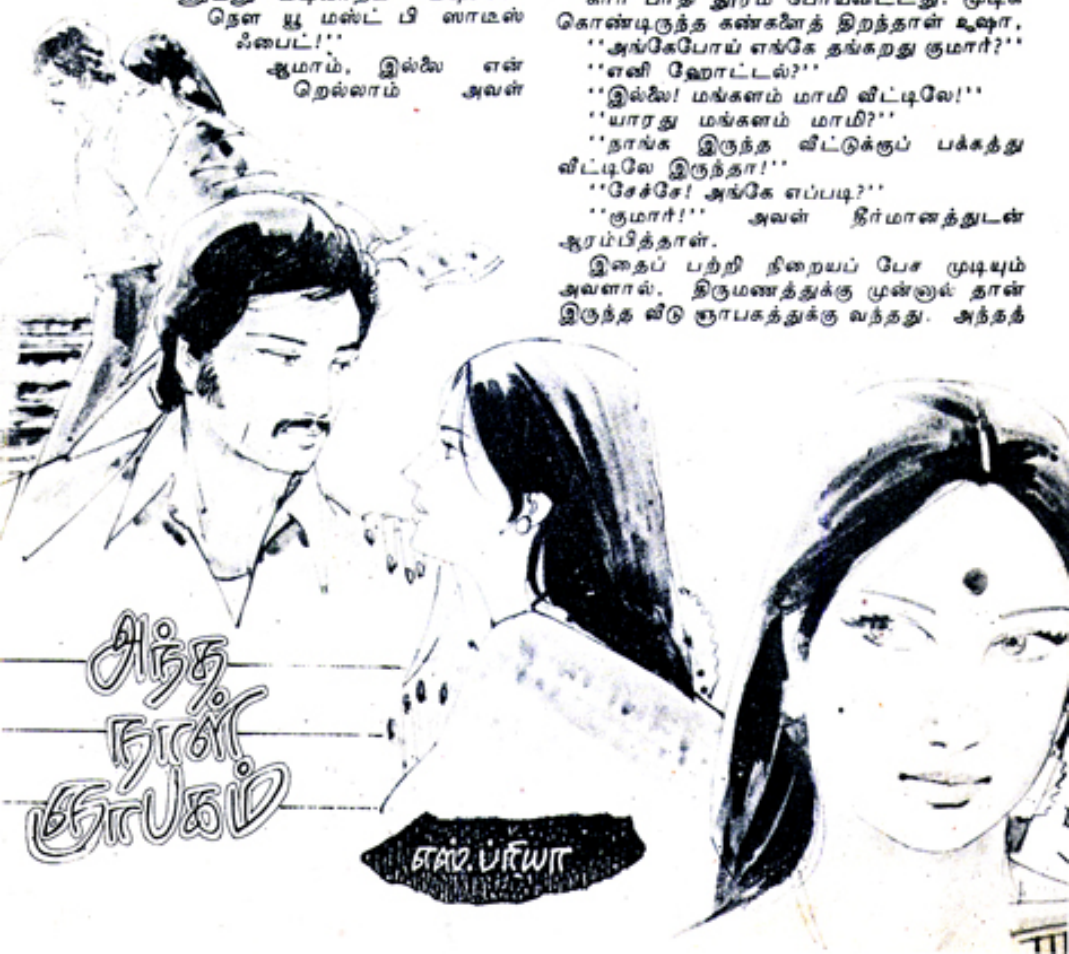 நௌ யூ மஸ்ட் பி ஸாடீஸ்
ஃபைட்!''
ஆமாம், இல்லை என்
றெல்லாம் அவள்
கார் பாதி தூரம் போய்விட்டது. மூடிக்
கொண்டிருந்த கண்களைத் திறந்தாள் உஷா.
''அங்கேபோய் எங்கே தங்கறது குமார்?''
''எனி ஹோட்டல்?''
''இல்லை! மங்களம் மாமி வீட்டிலே!''
''யாரது மங்களம் மாமி?''
''நாங்க இருந்த வீட்டுக்குப் பக்கத்து
வீட்டிலே இருந்தா!''
''சேச்சே! அங்கே எப்படி?''
''குமார்!'' அவள் தீர்மானத்துடன்
ஆரம்பித்தாள்.
இதைப் பற்றி நிறையப் பேச முடியும்
அவளால். திருமணத்துக்கு முன்னால் தான்
இருந்த வீடு ஞாபகத்துக்கு வந்தது. அந்தத்
அந்த
நாள்
ஞாபகம்
எஸ். ப்ரியா